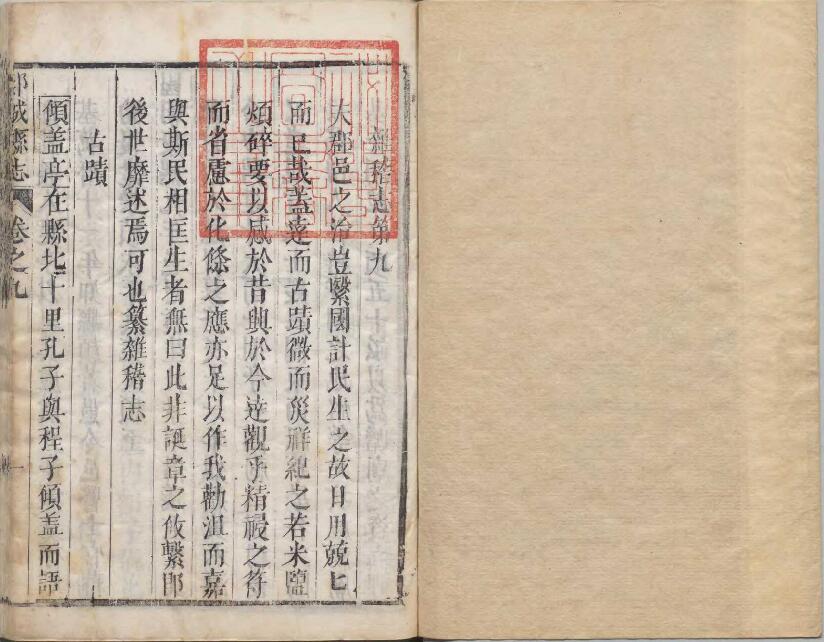 雜稽志第九
夫郡邑之治豈繫國計民生之故日用兢匕
而已哉蓋遠而古蹟微而災祥絕之若米鹽
煩碎要以感於昔與於今達觀乎精祲之符
而省慮於化條之應亦足以作我勸沮而嘉
與斯民相匡生者無曰此非誕章之攸繫郎
後世靡述焉可也纂雜稽志
古蹟
傾盖亭在縣北十里孔子與程子傾盖而語
郯城縣志 卷之九 一